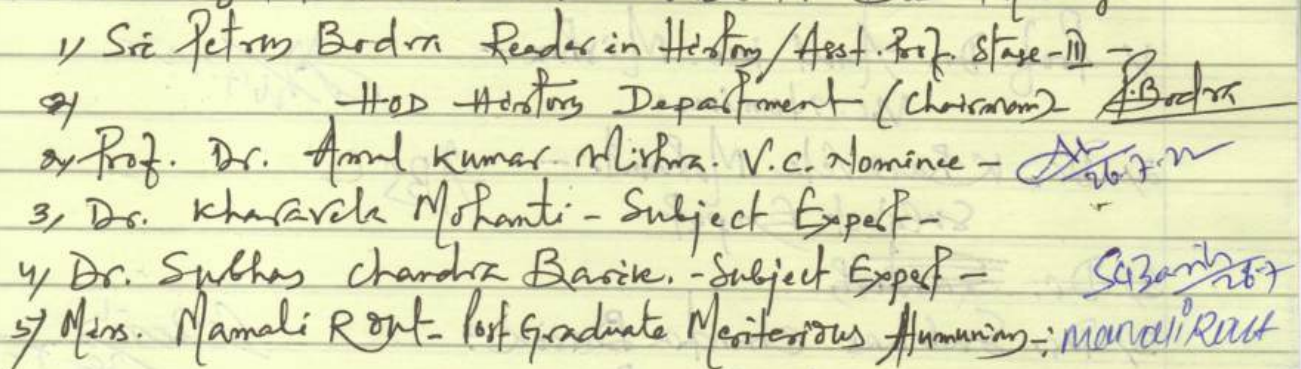 1) Sri Petras Bodra Reader in History/Asst. Prof. Stage-III -
2) HOD History Department (Chairman) P.Bodra
2) Prof. Dr. Amal Kumar Mishra. V.C. Nominee - 26.7.22
3, Dr. Kharavela Mohanti - Subject Expert -
4) Dr. Subhas Chandra Barik. - Subject Expert - SCBarik 26-7
5) Miss. Mamali Rout - Post Graduate Meriterious Alumuning -: Mamali Rout